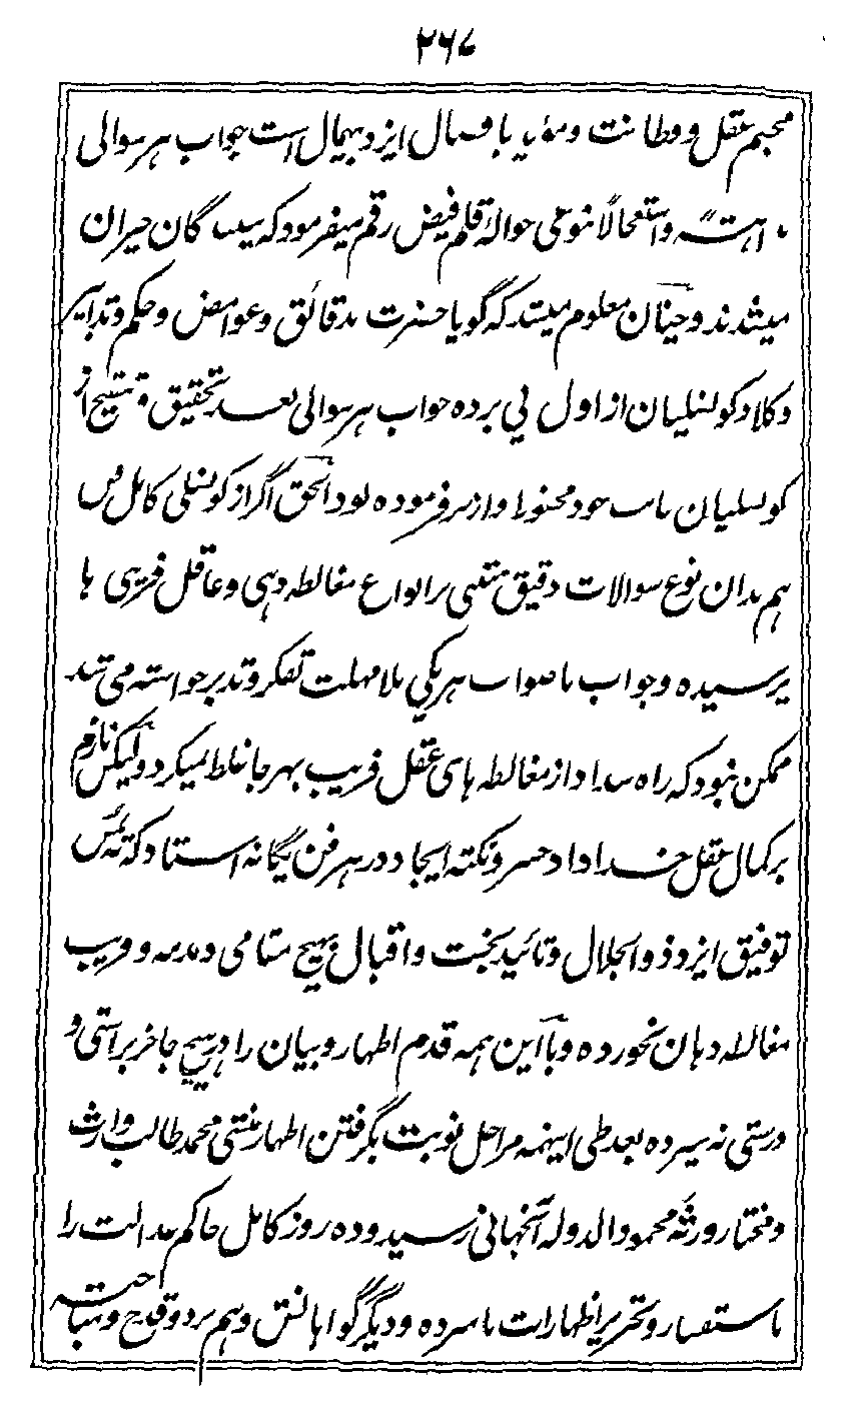 ۲۶۷
مجسم عقل و فطانت و مؤید با فضال ایزد بیهمال است جواب هر سوالی
واستعجالاً نوعی حواله قلم فیض رقم میفرمود که گان حیران
میشدند و چنان معلوم میشد که گویا حضرت بدقائق و غوامض و حکم و تدابیر
وکلا و کونسلیان از اول پی برده جواب هر سوالی بعد تحقیق و تنقیح از
کونسلیان خود محفوظ و از سر فرموده بود الحق اگر از کونسلی کامل فن
هم بدان نوع سوالات دقیق مبتنی بر انواع مغالطه دهی و عاقل فریبی ها
پرسیده و جواب با صواب هر یکی بلا مهلت تفکر و تدبر خواسته می شد
ممکن نبود که راه سداد از مغالطه های عقل فریب بهر جا غلط نمیکرد و لیکن نازم
بر کمال عقل خداداد خسرو نکته ایجاد در هر فن یگانه استاد که
توفیق ایزد ذوالجلال و تائید بخت و اقبال بهیچ مقامی و فریب
مغالطه دهان نخورده و باین همه قدم اظهار و بیان را در هیچ جا خبر براستی و
درستی نه سپرده بعد طی اینهمه مراحل نوبت بگرفتن اظهار منشی محمد طالب وارث
و مختار ورثه محمود الدوله آنجهانی رسید و ده روز کامل حاکم عدالت را
باستفسار و تحریر اظهارات نامبرده و دیگر گواهانش و هم رد و قدح و مباحثه